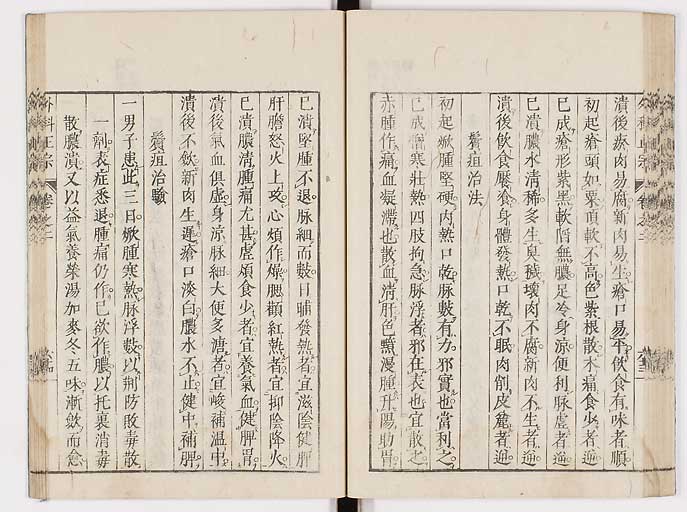 潰後瘀肉易腐新肉易生瘡口易平飲食有味者順
初起瘡頭如粟頂軟不高色紫根散木痛食少者逆
已成瘡形紫黑軟陷無膿足冷身涼便利脉虛者逆
已潰膿水清稀多生臭穢壞肉不腐新肉不生者逆
潰後飲食厭食身體發熱口乾不眠肉削皮麄者逆
鬢疽治法
初起焮腫堅硬肉熱口乾脉數有力邪實也當利之
已成憎寒壯熱四肢拘急脉浮者邪在表也宜散之
赤腫作痛血凝滯也散血清肝色黯漫腫升陽助胃
已潰堅腫不退脉細而數日晡發熱者宜滋陰健脾
肝膽怒火上攻心煩作燥腮顴紅熱者宜抑陰降火
已潰膿清腫痛尤甚虛煩食少者宜養氣血健脾胃
潰後氣血俱虛身涼脉細大便多溏者宜峻補溫中
潰後不飲新肉生遲瘡口淡白膿水不止健中補脾
鬢疽治驗
一男子患此三日焮腫寒熱脉浮數以荊防敗毒散
一劑表症悉退腫痛仍作已欲作膿以托裏消毒
散膿潰又以益氣養榮湯加麥冬五味漸斂而愈
外科正宗
卷之二
外科正宗
卷之二